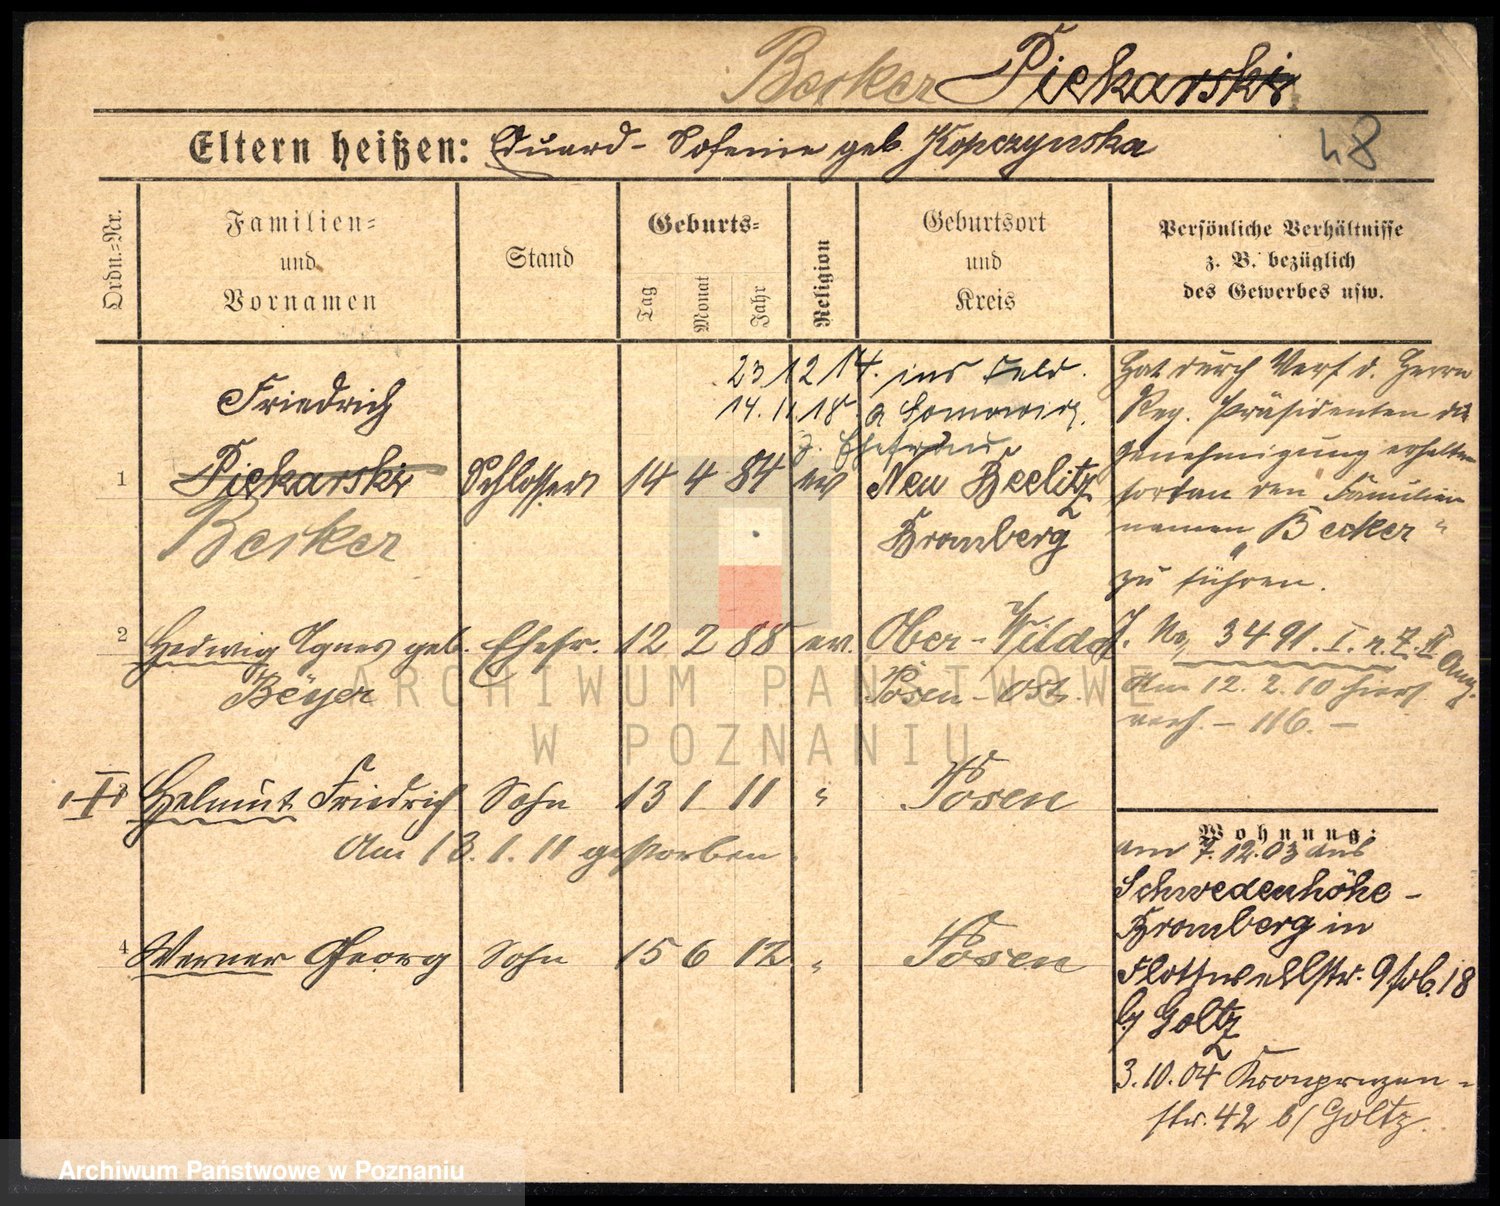 Becker Piekarski
Eltern heißen: Eduard - Sofemie geb Kopczynska
48
Ordn.=Nr.
Familien=
und
Vornamen
Stand
Geburts=
Tag
Monat
Jahr
Religion
Geburtsort
und
Kreis
Persönliche Verhältnisse
z. B. bezüglich
des Gewerbes usw.
23 12 14. ins Feld.
14. 11 18. a
z. Ehefrau
Friedrich
1 Piekarski Schlosser 14 4 84 ev Neu Beelitz
Becker Bromberg
Hat durch Verf d. Herrn
Reg. Präsidenten die
Genehmigung erhalten
fortan den Familien
namen „Becker“
zu führen.
J. No. 3491. I. n. Z. II Ang.
Am 12. 2. 10 hier
verh. - 116. -
2 Hedwig Agnes geb. Ehefr. 12 2 88 ev. Ober-Wilda
Beyer Posen-Ost
3 Helmut Friedrich Sohn 13 1 11 " Posen
Am 13. 1. 11 gestorben.
4 Werner Georg Sohn 15 6 12 " Posen
Wohnung:
am 7. 12. 03 aus
Schwedenhöhe -
Bromberg in
Flottwellstr. 9 18
b/ Goltz
3. 10. 04 Kronprinzen-
str. 42 b/ Goltz.
ARCHIWUM PAŃSTWOWE
W POZNANIU
Archiwum Państwowe w Poznaniu